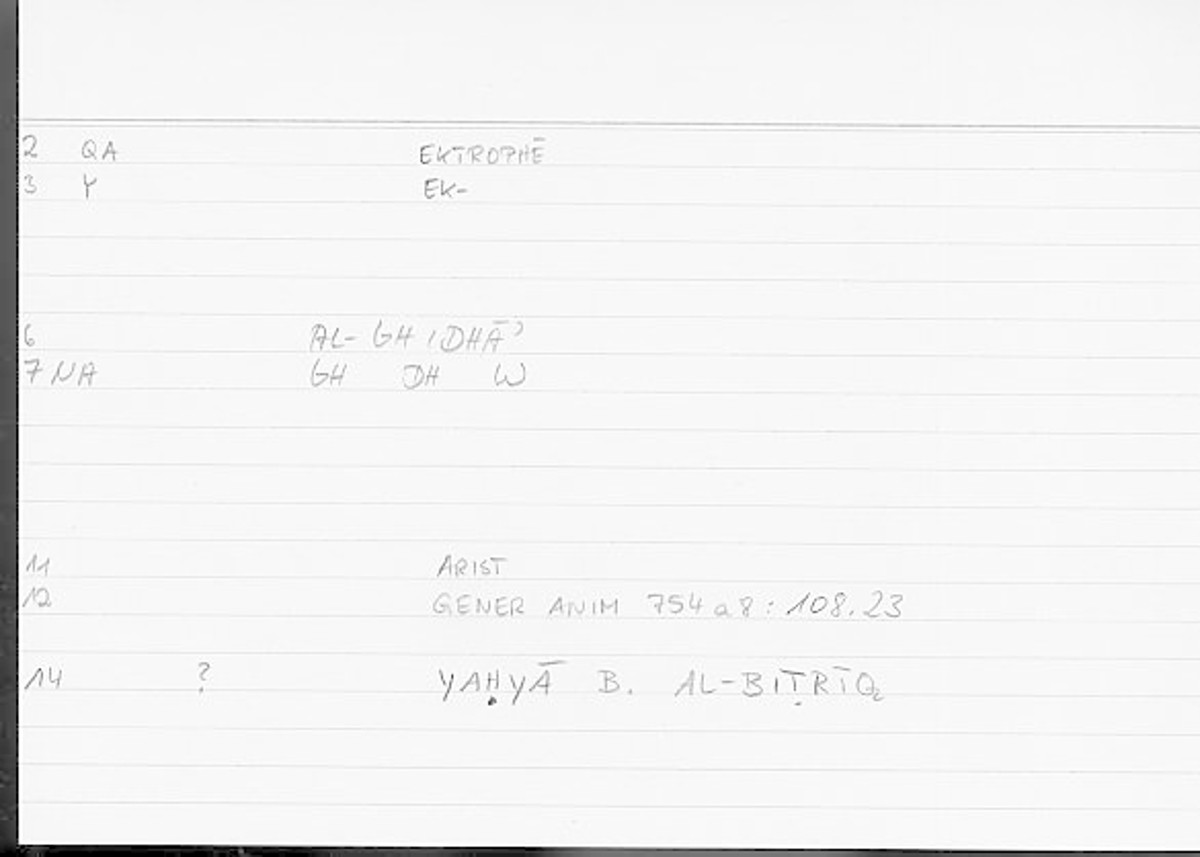 2 QA EKTROPHĒ
3 Y EK-
6 AL-GHIDHĀʾ
7 NA GH DH W
11 ARIST
12 GENER ANIM 754 a 8 : 108.23
14 ? YAḤYĀ B. AL-BIṬRĪQ